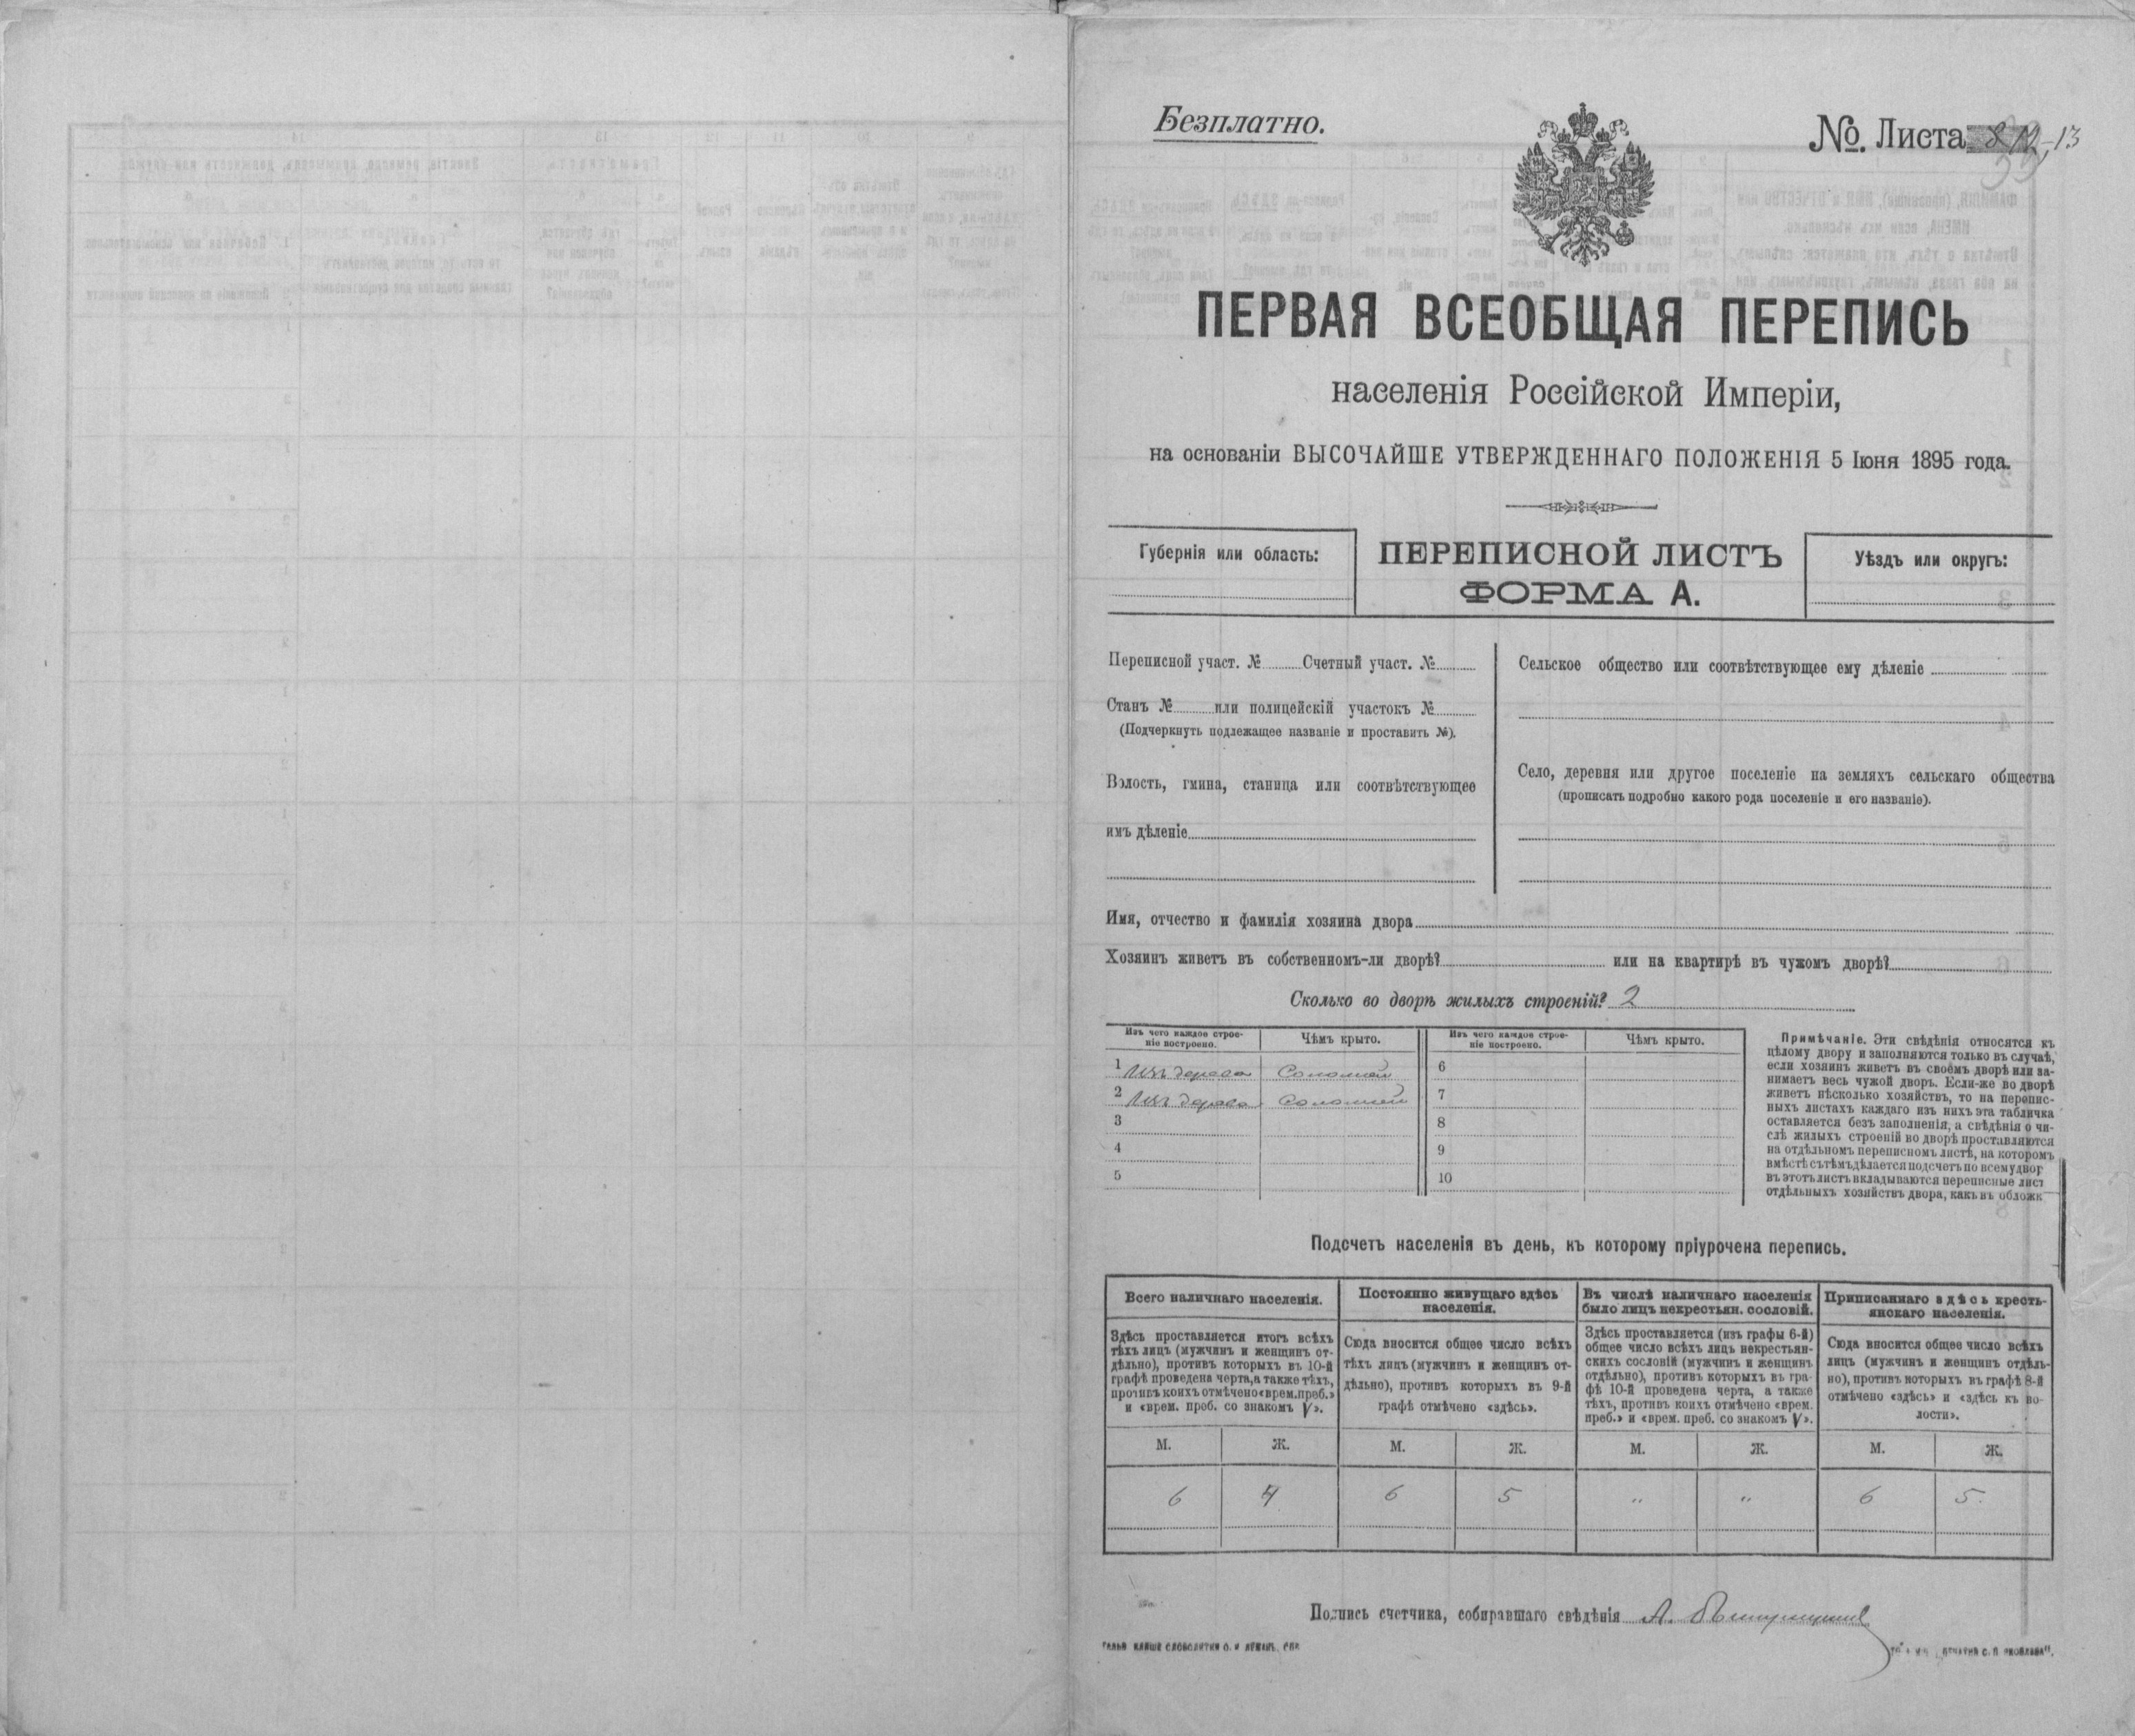 Безплатно.
№. Листа 8 12-13
ПЕРВАЯ ВСЕОБЩАЯ ПЕРЕПИСЬ
населенія Россійской Имперіи,
на основаніи ВЫСОЧАЙШЕ УТВЕРЖДЕННАГО ПОЛОЖЕНІЯ 5 Іюня 1895 года.
Губернія или область:
ПЕРЕПИСНОЙ ЛИСТЪ
ФОРМА А.
Уѣздъ или округъ:
Переписной участ. № Счетный участ. №
Станъ № или полицейскій участокъ №
(Подчеркнуть подлежащее названіе и проставить №).
Волость, гмина, станица или соотвѣтствующее
имъ дѣленіе
Сельское общество или соотвѣтствующее ему дѣленіе
Село, деревня или другое поселеніе на земляхъ сельскаго общества
(прописать подробно какого рода поселеніе и его названіе).
Имя, отчество и фамилія хозяина двора
Хозяинъ живетъ въ собственномъ-ли дворѣ? или на квартирѣ въ чужомъ дворѣ?
Сколько во дворѣ жилыхъ строеній? 2
Изъ чего каждое строе-
ніе построено.
Чѣмъ крыто.
Изъ чего каждое строе-
ніе построено.
Чѣмъ крыто.
1 Изъ дерева Соломой 6
2 Изъ дерева Соломой 7
3 8
4 9
5 10
Примѣчаніе. Эти свѣдѣнія относятся къ
цѣлому двору и заполняются только въ случаѣ,
если хозяинъ живетъ въ своёмъ дворѣ или за-
нимаетъ весь чужой дворъ. Если-же во дворѣ
живетъ нѣсколько хозяйствъ, то на перепис-
ныхъ листахъ каждаго изъ нихъ эта табличка
оставляется безъ заполненія, а свѣдѣнія о чи-
слѣ жилыхъ строеній во дворѣ проставляются
на отдѣльномъ переписномъ листѣ, на которомъ
вмѣстѣ съ тѣмъ дѣлается подсчетъ по всему двор
въ этотъ листъ вкладываются переписные лист
отдѣльныхъ хозяйствъ двора, какъ въ обложк
Подсчетъ населенія въ день, къ которому пріурочена перепись.
Всего наличнаго населенія.
Постоянно живущаго здѣсь
населенія.
Въ числѣ наличнаго населенія
было лицъ некрестьян. сословій.
Приписаннаго здѣсь кресть-
янскаго населенія.
Здѣсь проставляется итогъ всѣхъ
тѣхъ лицъ (мужчинъ и женщинъ от-
дѣльно), противъ которыхъ въ 10-й
графѣ проведена черта, а также тѣхъ,
противъ коихъ отмѣчено «врем. преб.»
и «врем. преб. со знакомъ V».
Сюда вносится общее число всѣхъ
тѣхъ лицъ (мужчинъ и женщинъ от-
дѣльно), противъ которыхъ въ 9-й
графѣ отмѣчено «здѣсь».
Здѣсь проставляется (изъ графы 6-й)
общее число всѣхъ лицъ некрестьян-
скихъ сословій (мужчинъ и женщинъ
отдѣльно), противъ которыхъ въ гра-
фѣ 10-й проведена черта, а также
тѣхъ, противъ коихъ отмѣчено «врем.
преб.» и «врем. преб. со знакомъ V».
Сюда вносится общее число всѣхъ
лицъ (мужчинъ и женщинъ отдѣль-
но), противъ которыхъ въ графѣ 8-й
отмѣчено «здѣсь» и «здѣсь къ во-
лости».
М. Ж. М. Ж. М. Ж. М. Ж.
6 4 6 5 " " 6 5.
Подпись счетчика, собиравшаго свѣдѣнія А.